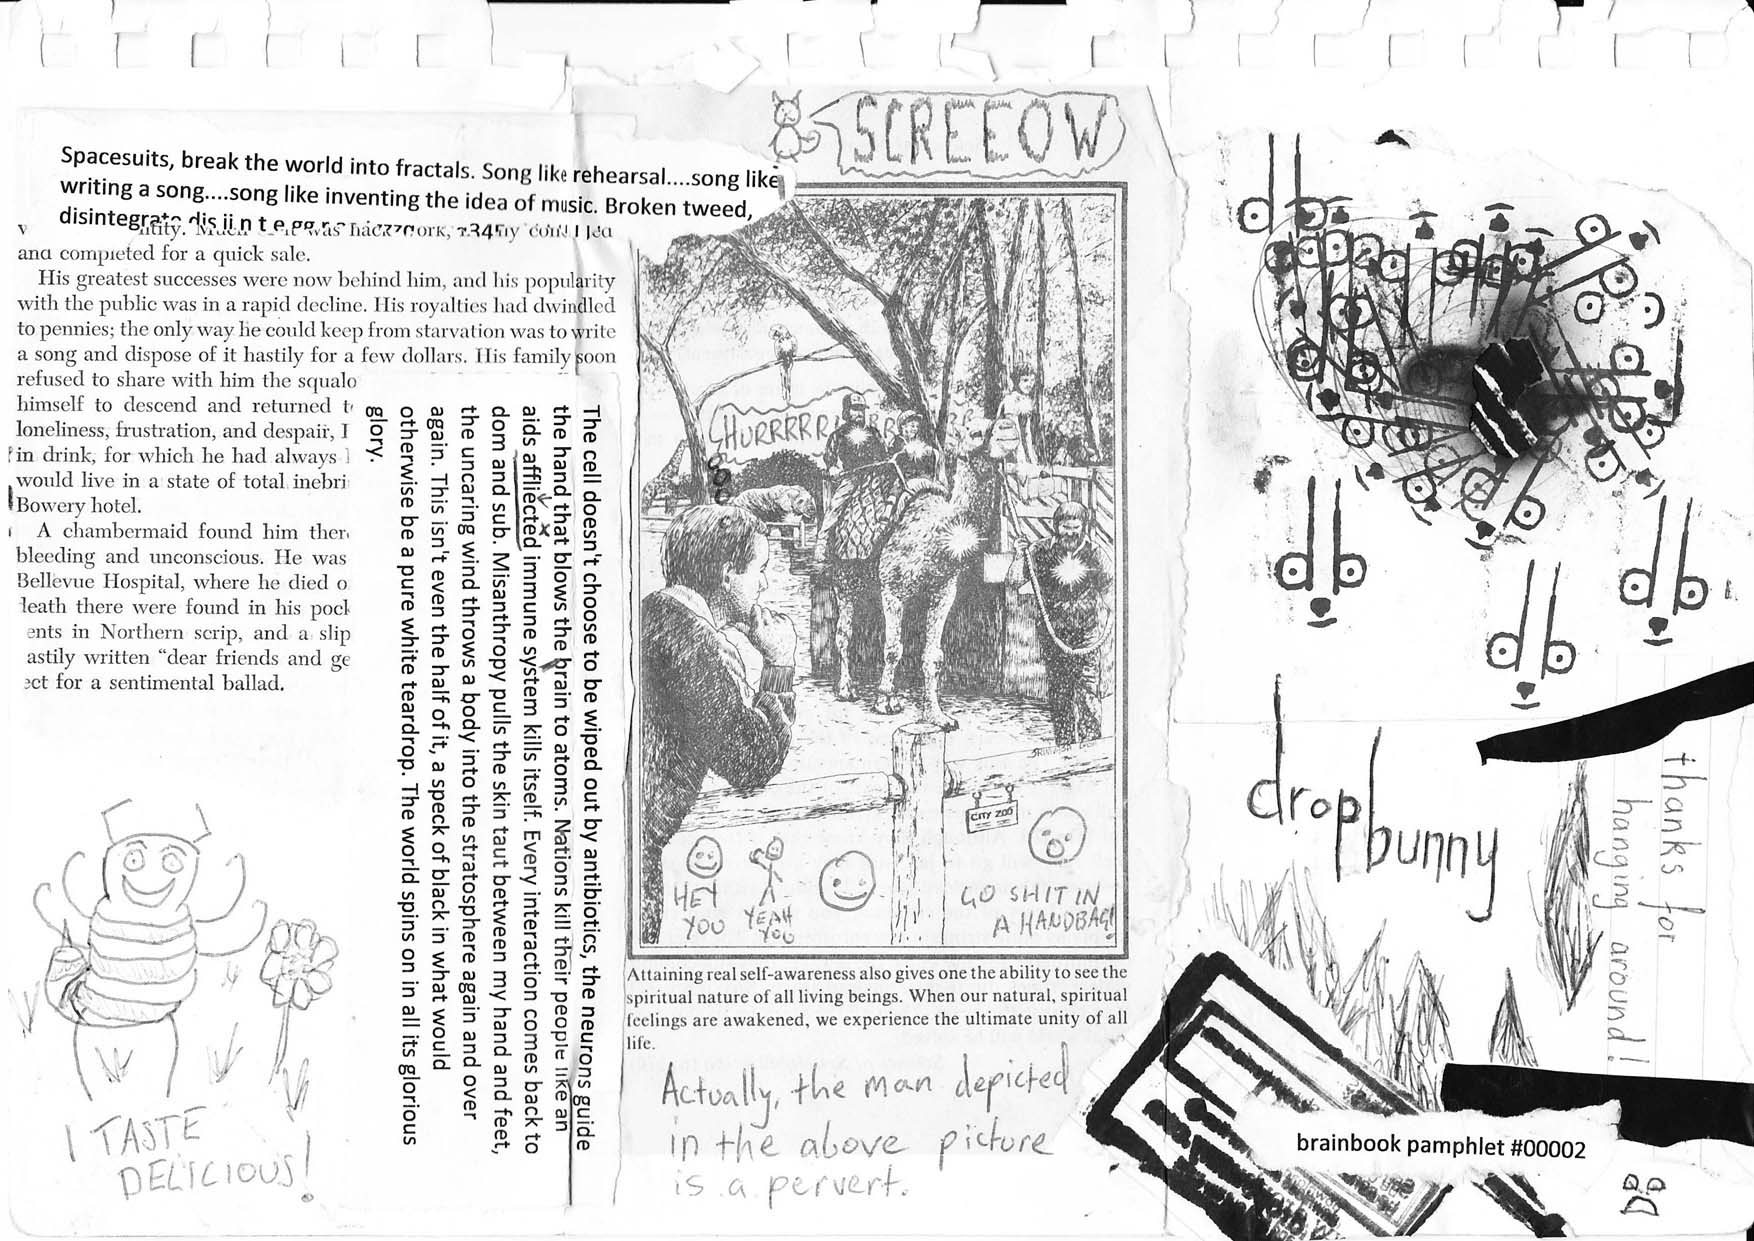 SCREEOW
Spacesuits, break the world into fractals. Song like rehearsal....song like
writing a song....song like inventing the idea of music. Broken tweed,
disintegrate
and completed for a quick sale.
His greatest successes were now behind him, and his popularity
with the public was in a rapid decline. His royalties had dwindled
to pennies; the only way he could keep from starvation was to write
a song and dispose of it hastily for a few dollars. His family soon
refused to share with him the squalo
himself to descend and returned t
loneliness, frustration, and despair, I
in drink, for which he had always
would live in a state of total inebri
Bowery hotel.
A chambermaid found him ther
bleeding and unconscious. He was
Bellevue Hospital, where he died o
death there were found in his pock
ents in Northern scrip, and a slip
astily written “dear friends and ge
ect for a sentimental ballad.
The cell doesn't choose to be wiped out by antibiotics, the neurons guide
the hand that blows the brain to atoms. Nations kill their people like an
aids affliected immune system kills itself. Every interaction comes back to
dom and sub. Misanthropy pulls the skin taut between my hand and feet,
the uncaring wind throws a body into the stratosphere again and over
again. This isn't even the half of it, a speck of black in what would
otherwise be a pure white teardrop. The world spins on in all its glorious
glory.
I TASTE
DELICIOUS!
CITY ZOO
HEY
YOU
YEAH
YOU
GO SHIT IN
A HANDBAG!
Attaining real self-awareness also gives one the ability to see the
spiritual nature of all living beings. When our natural, spiritual
feelings are awakened, we experience the ultimate unity of all
life.
Actually, the man depicted
in the above picture
is a pervert.
drop bunny
thanks for
hanging around!
brainbook pamphlet #00002